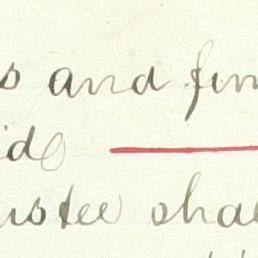 s and fin
id
ustee shal